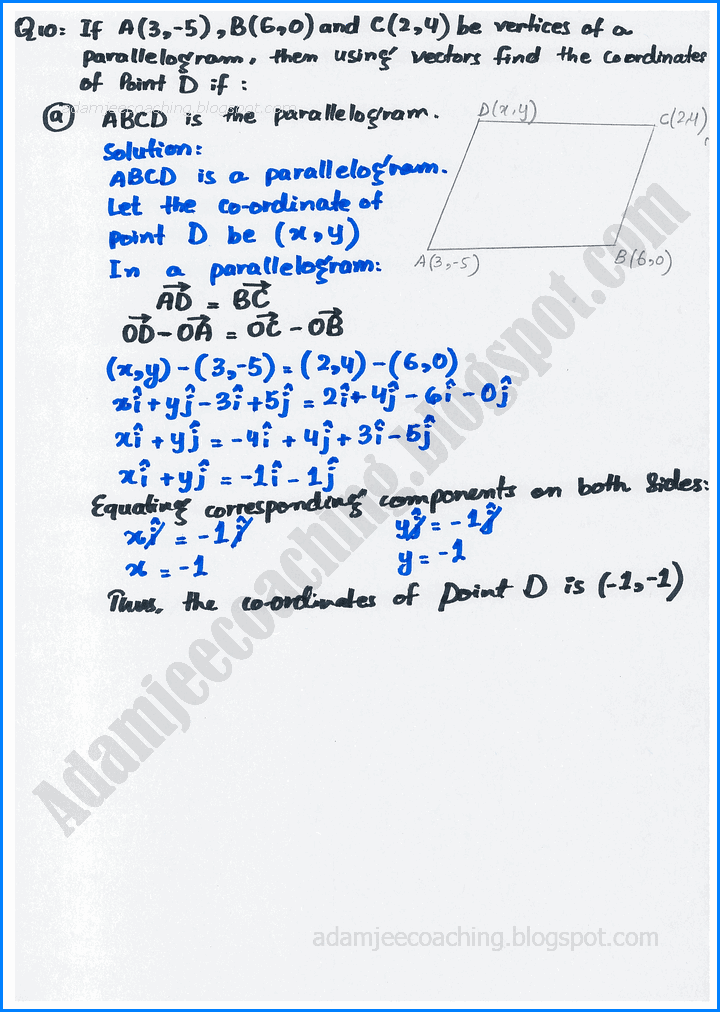 Q10: If A(3,-5), B(6,0) and C(2,4) be vertices of a
parallelogram, then using vectors find the coordinates
of Point D if :
adamjeecoaching.blogspot.com
(a) ABCD is the parallelogram.
D(x,y)
C(2,4)
Solution:
ABCD is a parallelogram.
Let the co-ordinate of
point D be (x,y)
A(3,-5)
B(6,0)
In a parallelogram:
AD⃗ = BC⃗
OD⃗ - OA⃗ = OC⃗ - OB⃗
(x,y) - (3,-5) = (2,4) - (6,0)
xî + yĵ - 3î + 5ĵ = 2î + 4ĵ - 6î - 0ĵ
xî + yĵ = -4î + 4ĵ + 3î - 5ĵ
xî + yĵ = -1î - 1ĵ
Equating corresponding components on both sides:
xĵ = -1ĵ yĵ = -1ĵ
x = -1 y = -1
Thus, the co-ordinates of point D is (-1,-1)
Adamjeecoaching.blogspot.com
adamjeecoaching.blogspot.com